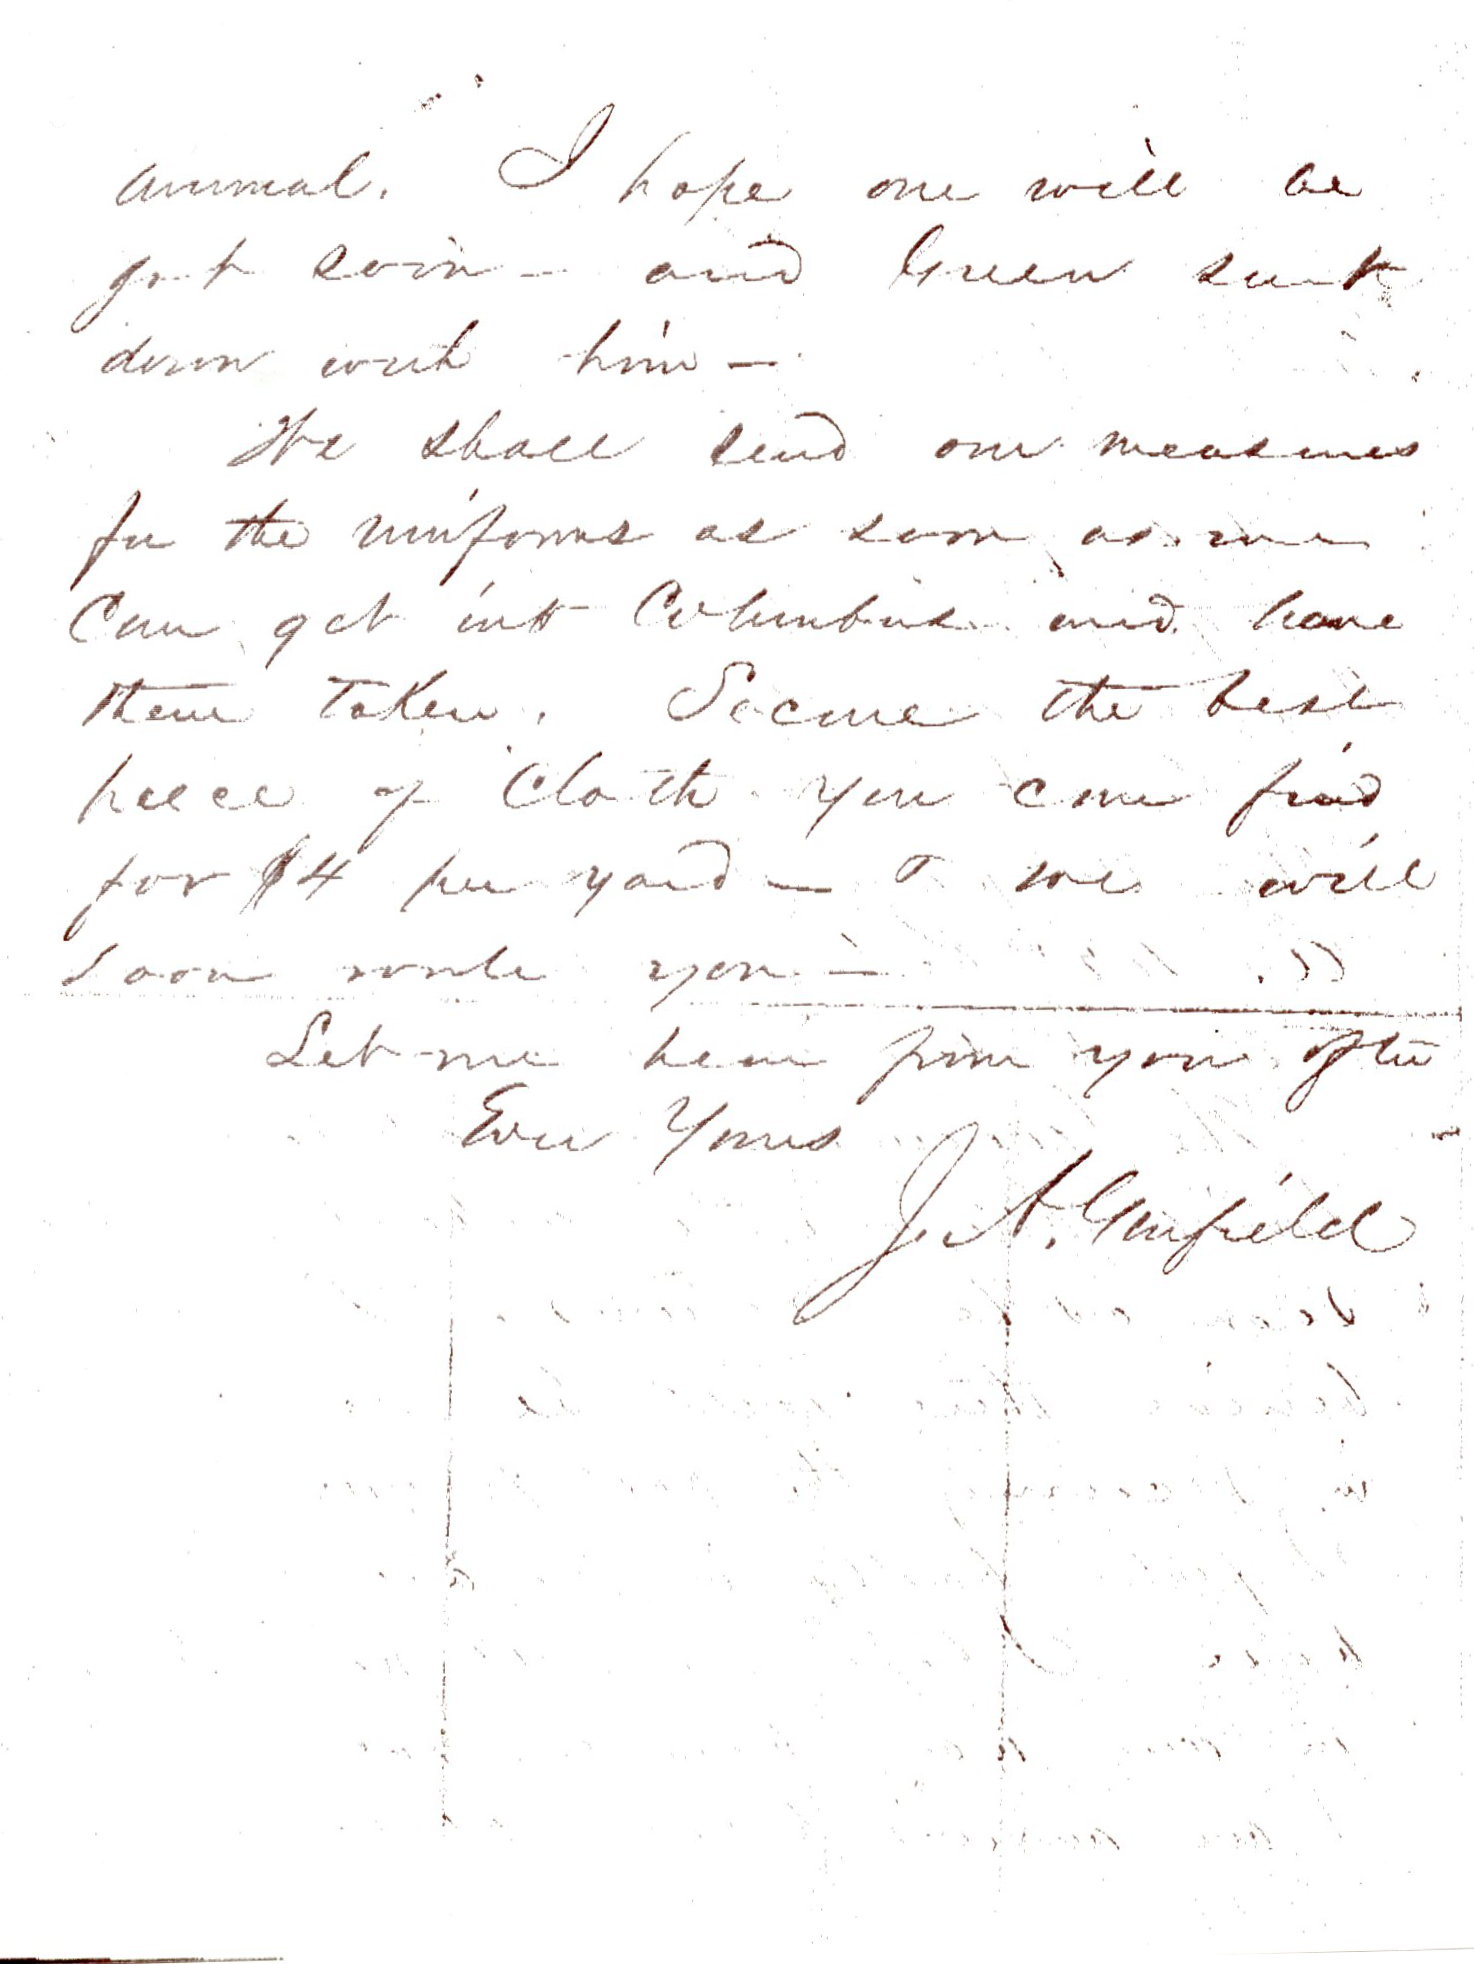 animal. I hope one will be
got soon - and Green sent
down with him -
We shall send our measures
for the uniforms as soon as we
can get into Columbus and have
them taken. Secure the best
piece of cloth you can find
for $4 per yard - & we will
soon write you -
Let me hear from you often
Ever Yours
J. A. Garfield